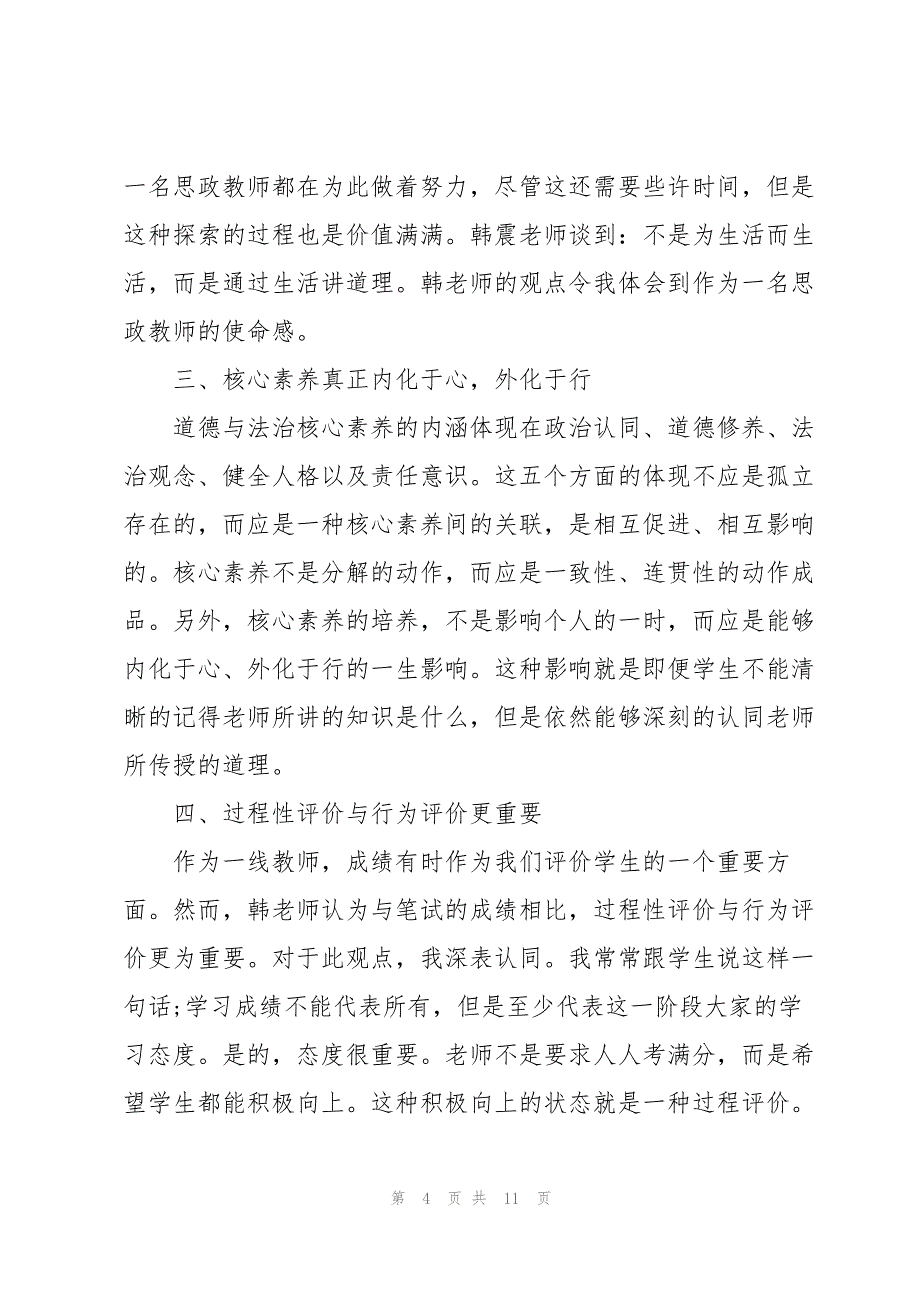 一名思政教师都在为此做着努力，尽管这还需要些许时间，但是
这种探索的过程也是价值满满。韩震老师谈到：不是为生活而生
活，而是通过生活讲道理。韩老师的观点令我体会到作为一名思
政教师的使命感。
三、核心素养真正内化于心，外化于行
道德与法治核心素养的内涵体现在政治认同、道德修养、法
治观念、健全人格以及责任意识。这五个方面的体现不应是孤立
存在的，而应是一种核心素养间的关联，是相互促进、相互影响
的。核心素养不是分解的动作，而应是一致性、连贯性的动作成
品。另外，核心素养的培养，不是影响个人的一时，而应是能够
内化于心、外化于行的一生影响。这种影响就是即便学生不能清
晰的记得老师所讲的知识是什么，但是依然能够深刻的认同老师
所传授的道理。
四、过程性评价与行为评价更重要
作为一线教师，成绩有时作为我们评价学生的一个重要方
面。然而，韩老师认为与笔试的成绩相比，过程性评价与行为评
价更为重要。对于此观点，我深表认同。我常常跟学生说这样一
句话;学习成绩不能代表所有，但是至少代表这一阶段大家的学
习态度。是的，态度很重要。老师不是要求人人考满分，而是希
望学生都能积极向上。这种积极向上的状态就是一种过程评价。
第 4 页 共 11 页